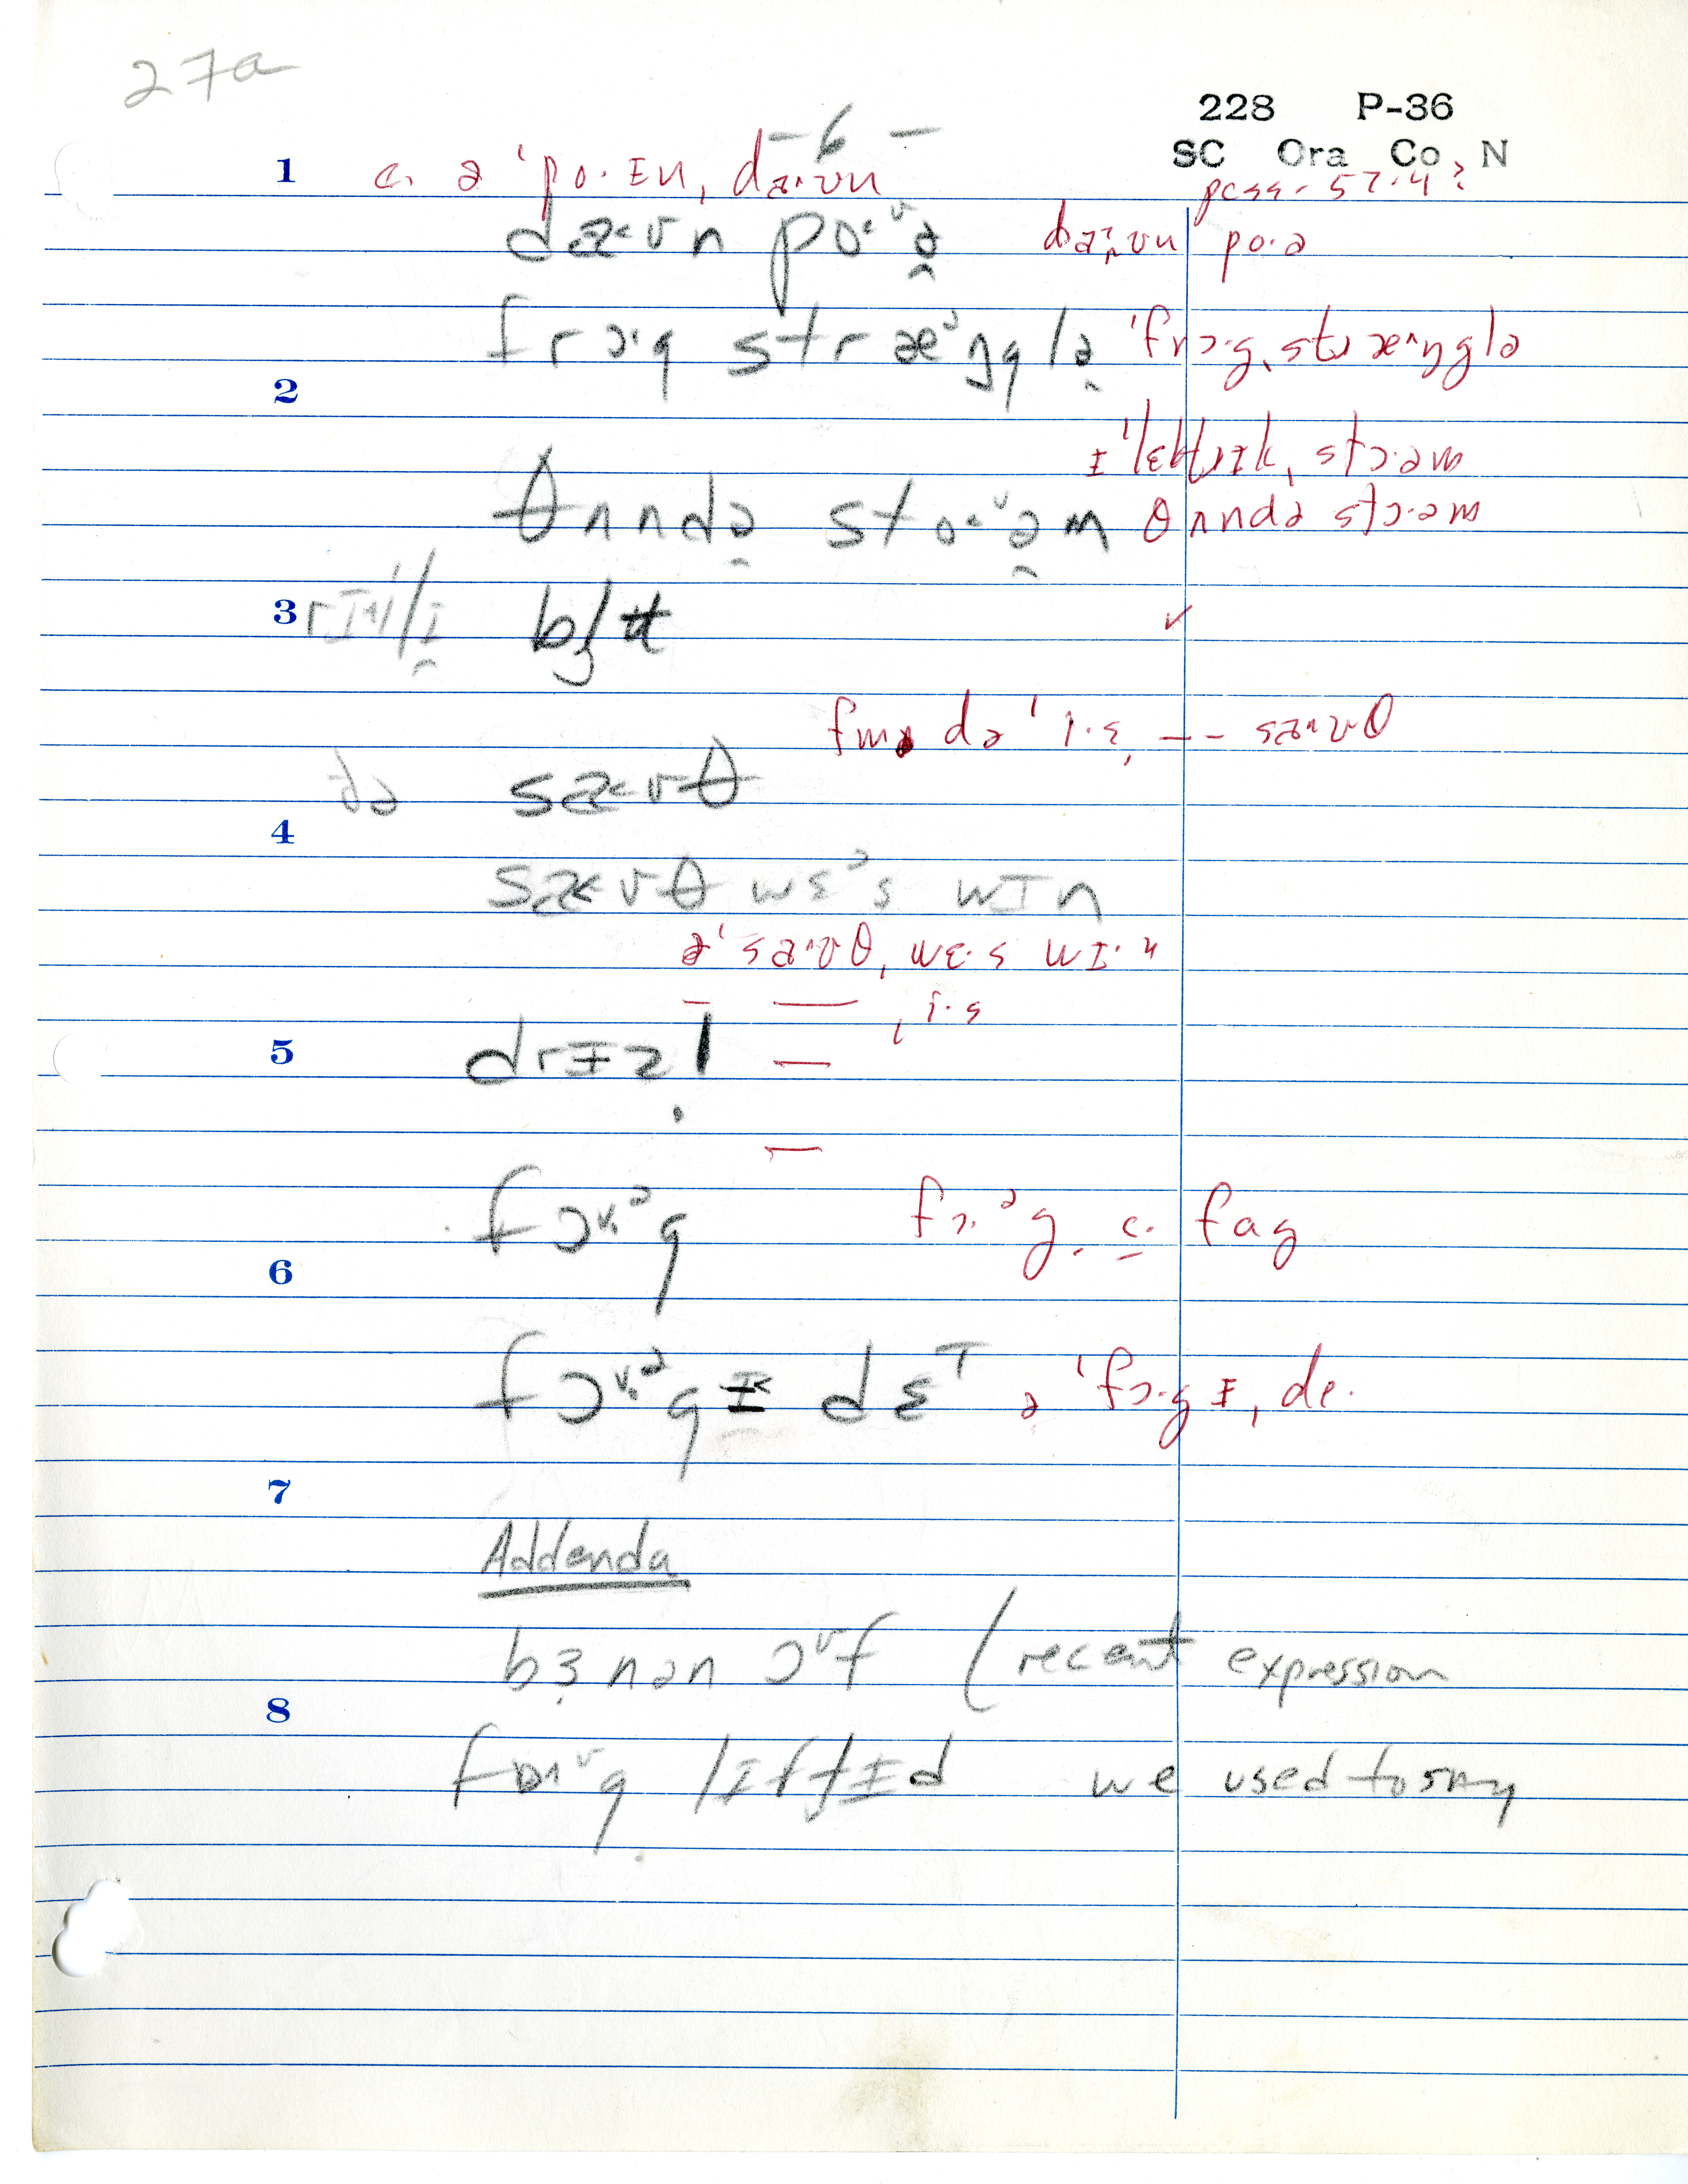 27a
228 P-36
SC Ora Co N
- 6 -
1 c. ə ˈpo·ɪn, da·ʊn
poss. 57.4?
da<ʊn po·ᵛə̯ daˑʊn po·ə
frɔ·g stræᵛŋglə̯ ˈfrɔ·g, stræ^ŋglə
2
ɪˈlɛktrɪk, stɔ·əm
θʌndə̯ sto<ᵛə̯m θʌndə stɔ·əm
3 b ✓
fmə də ˈi·ɛ, -- sa^ʊθ
də sa<ʊθ
4
sa<ʊθ wɛᵊs wɪn
ə ˈsa^ʊθ, wɛ·s wɪ·n
, i·s
5 drɪzl̩
fɔᵛ·ᵊg fɔ·ᵊg. c. fag
6
fɔᵛ·ᵊgɪ dɛ ə ˈfɔ·gɪ, de·
7
Addenda
bɜnən ɔᵛf (recent expression
8
lɪftɪd we used to say